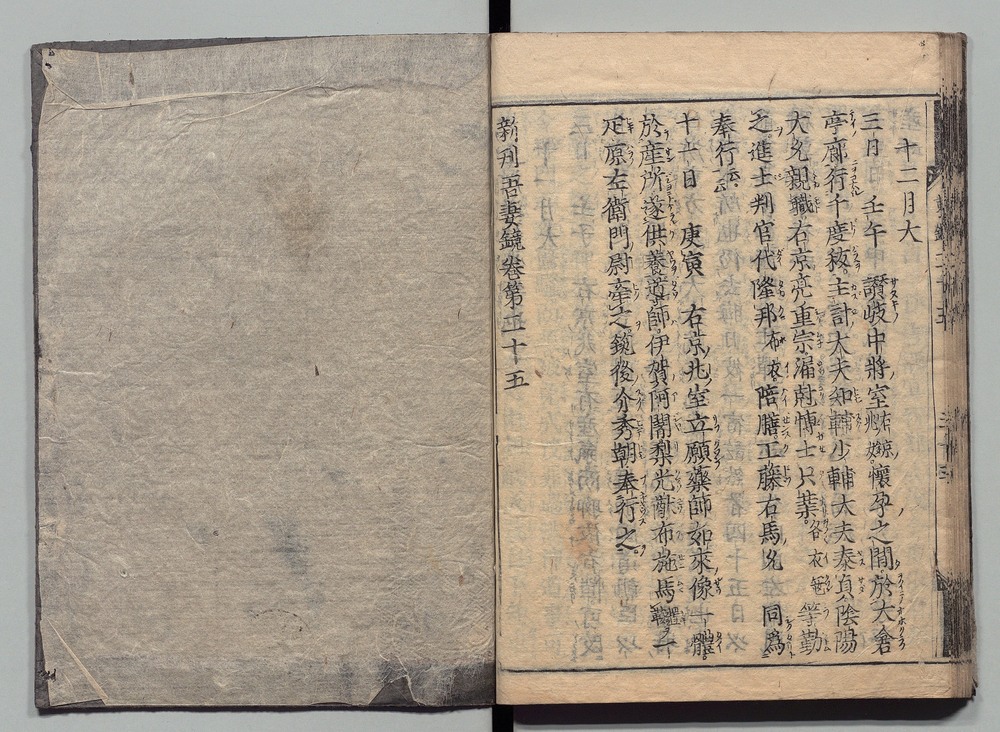 十二月大
三日 壬午 讃岐中將室 右京兆女 懷孕之間於大倉
亭廊行千度祓主計大夫知輔少輔大夫泰貞陰陽
大允親職右京亮重宗漏尅博士 等勤
之進士判官代隆邦布衣陪膳正藤右馬允 同爲
奉行云云
十一日 庚寅 右京兆室立願藥師如來像一體
於産所遂供養導師伊賀阿闍梨 布施馬一
疋原左衛門尉牽之筑後介秀朝奉行之
新刋吾妻鏡卷第二十五